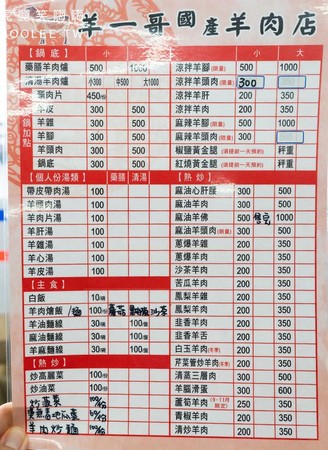 羊一哥國產羊肉店
【鍋底】 小 大
藥膳羊肉爐 500 1000
清湯羊肉爐 小300 中500 大1000
頸肉片 450/份
羊皮 300 500
羊雜 300 500
羊腳 300 500
羊頭肉 300 500
鍋底 300 500
【個人份湯類】 藥膳 清湯
帶皮帶肉湯 100
羊頭肉湯 100
羊肉片湯 100
羊肝湯 100
羊雜湯 100
羊心湯 100
羊皮湯 100
【主食】
白飯 10/碗
羊肉燴飯/麵 100/份
羊油麵線 30/碗 100/個
羊油麵線 30/碗 100/個
羊麻麵線 30/碗 100/個
【熱炒】
炒高麗菜 100
炒油菜 100
炒蔬菜 100/份
羊肉炒麵
小 大
涼拌羊腳(限量) 500 1000
涼拌羊頭肉(限量) 300
涼拌羊肝 200 350
麻辣羊腳(限量) 500 1000
麻辣羊頭肉(限量) 300
椒鹽黃金腿(須提前一天預約) 秤重
紅燒黃金腿(須提前一天預約) 秤重
【熱炒】 小 大
麻油心肝腰 300 500
麻油羊肉 300 500
麻油羊佛 500 售完 1000
麻油羊頭肉(限量) 300 500
蔥爆羊雜 200 350
蔥爆羊肉 200 350
沙茶羊肉 200 350
苦瓜羊肉 200 350
鳳梨羊雜 200 350
鳳梨羊肉 200 350
韭香羊舌 200 350
韭香羊肚 200 350
白玉羊肉(冬季) 200 350
芹菜管炒羊肉(冬季) 200 350
清蒸三層肉 300 500
羊腦滑蛋 300 600
蘆筍羊肉(9-11月限定) 250 350
青椒羊肉 200 350
清炒羊肉 200 350